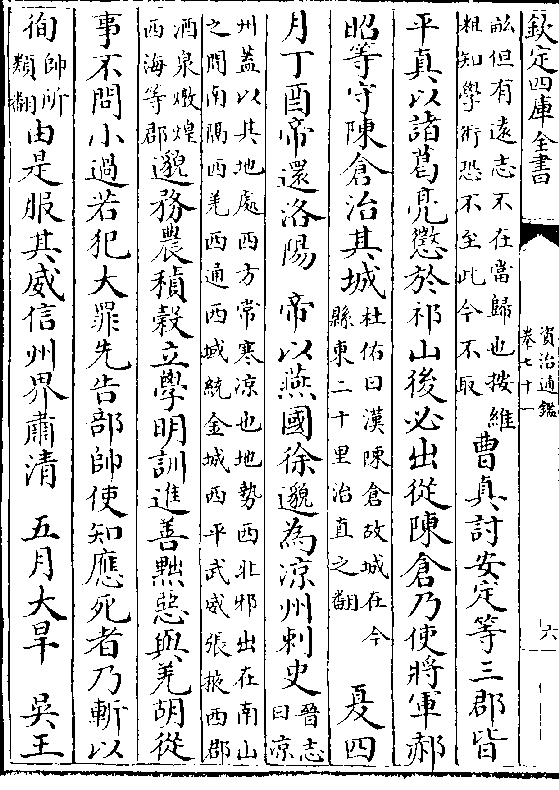 欽定四庫全書
資治通鑑
卷七十一
六
訟但有遠志不在當歸也按維
粗知學術恐不至此今不取
曹真討安定等三郡皆
平真以諸葛亮懲於祁山後必出從陳倉乃使將軍郝
昭等守陳倉治其城
杜佑曰漢陳倉故城在今
縣東二十里治直之翻
夏四
月丁酉帝還洛陽 帝以燕國徐邈為涼州刺史
晉志
曰凉
州蓋以其地處西方常寒凉也地勢西北邪出在南山
之間南隔西羌西通西域統金城西平武威張掖西郡
酒泉燉煌
西海等郡
邈務農積穀立學明訓進善黜惡與羌胡從
事不問小過若犯大罪先告部帥使知應死者乃斬以
徇
帥所
類翻
由是服其威信州界肅清 五月大旱 吳王